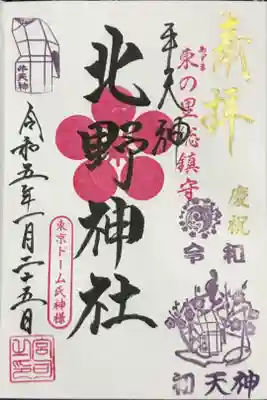 奉拝
慶祝
令和
初天神
東の里総鎮守
牛天神
北野神社
東京ドーム氏神様
令和五年一月二十五日
牛天神